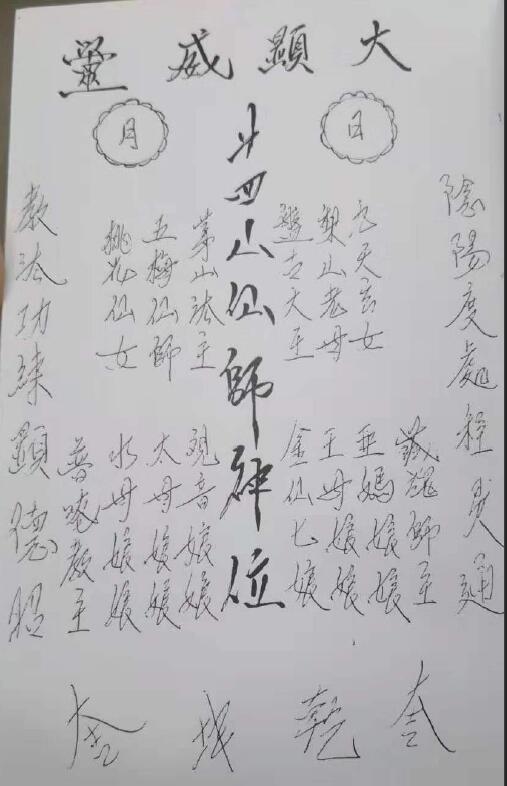 大顯威靈
日
月
陰陽度處經通
九天玄女
梨山老母
盤古大王
廿四山仙師神位
茅山法主
五梅仙師
桃花仙女
教法功練顯德昭
藏魂師主
王母娘娘
金仙七娘
觀音娘娘
太母娘娘
水母娘娘
普唵教主
乾